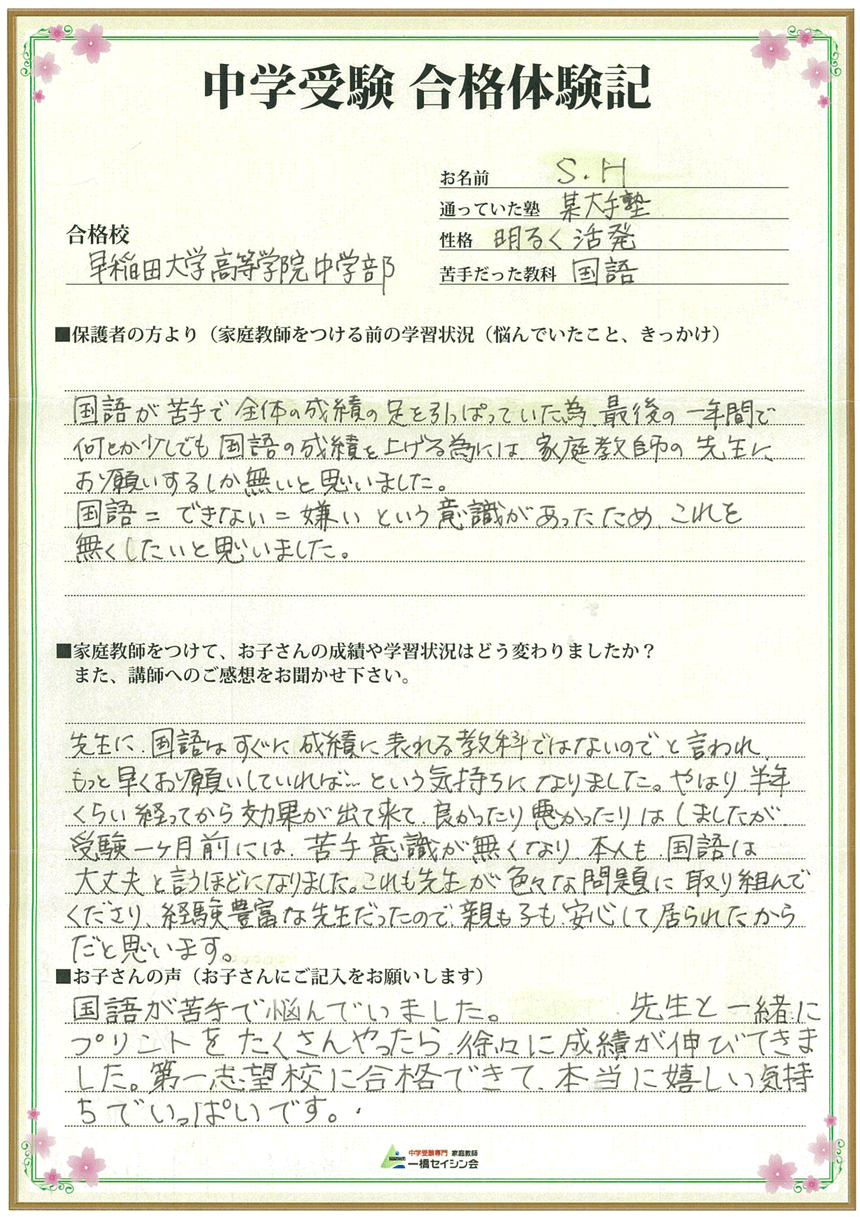 中学受験 合格体験記
お名前 S.H
通っていた塾 某大手塾
合格校
性格 明るく活発
早稲田大学高等学院中学部
苦手だった教科 国語
■保護者の方より（家庭教師をつける前の学習状況（悩んでいたこと、きっかけ）
国語が苦手で全体の成績の足を引っぱっていた為、最後の一年間で
何とか少しでも国語の成績を上げる為には、家庭教師の先生に
お願いするしか無いと思いました。
国語＝できない＝嫌いという意識があったため、これを
無くしたいと思いました。
■家庭教師をつけて、お子さんの成績や学習状況はどう変わりましたか？
また、講師へのご感想をお聞かせ下さい。
先生に、国語はすぐに成績に表れる教科ではないので、と言われ、
もっと早くお願いしていれば…という気持ちになりました。やはり半年
くらい経ってから効果が出て来て、良かったり悪かったりはしましたが、
受験一ヶ月前には、苦手意識が無くなり、本人も、国語は
大丈夫と言うほどになりました。これも先生が色々な問題に取り組んで
くださり、経験豊富な先生だったので、親も子も、安心して居られたから
だと思います。
■お子さんの声（お子さんにご記入をお願いします）
国語が苦手で悩んでいました。 先生と一緒に
プリントをたくさんやったら、徐々に成績が伸びてきま
した。第一志望校に合格できて、本当に嬉しい気持
ちでいっぱいです。
中学受験専門 家庭教師
一橋セイシン会